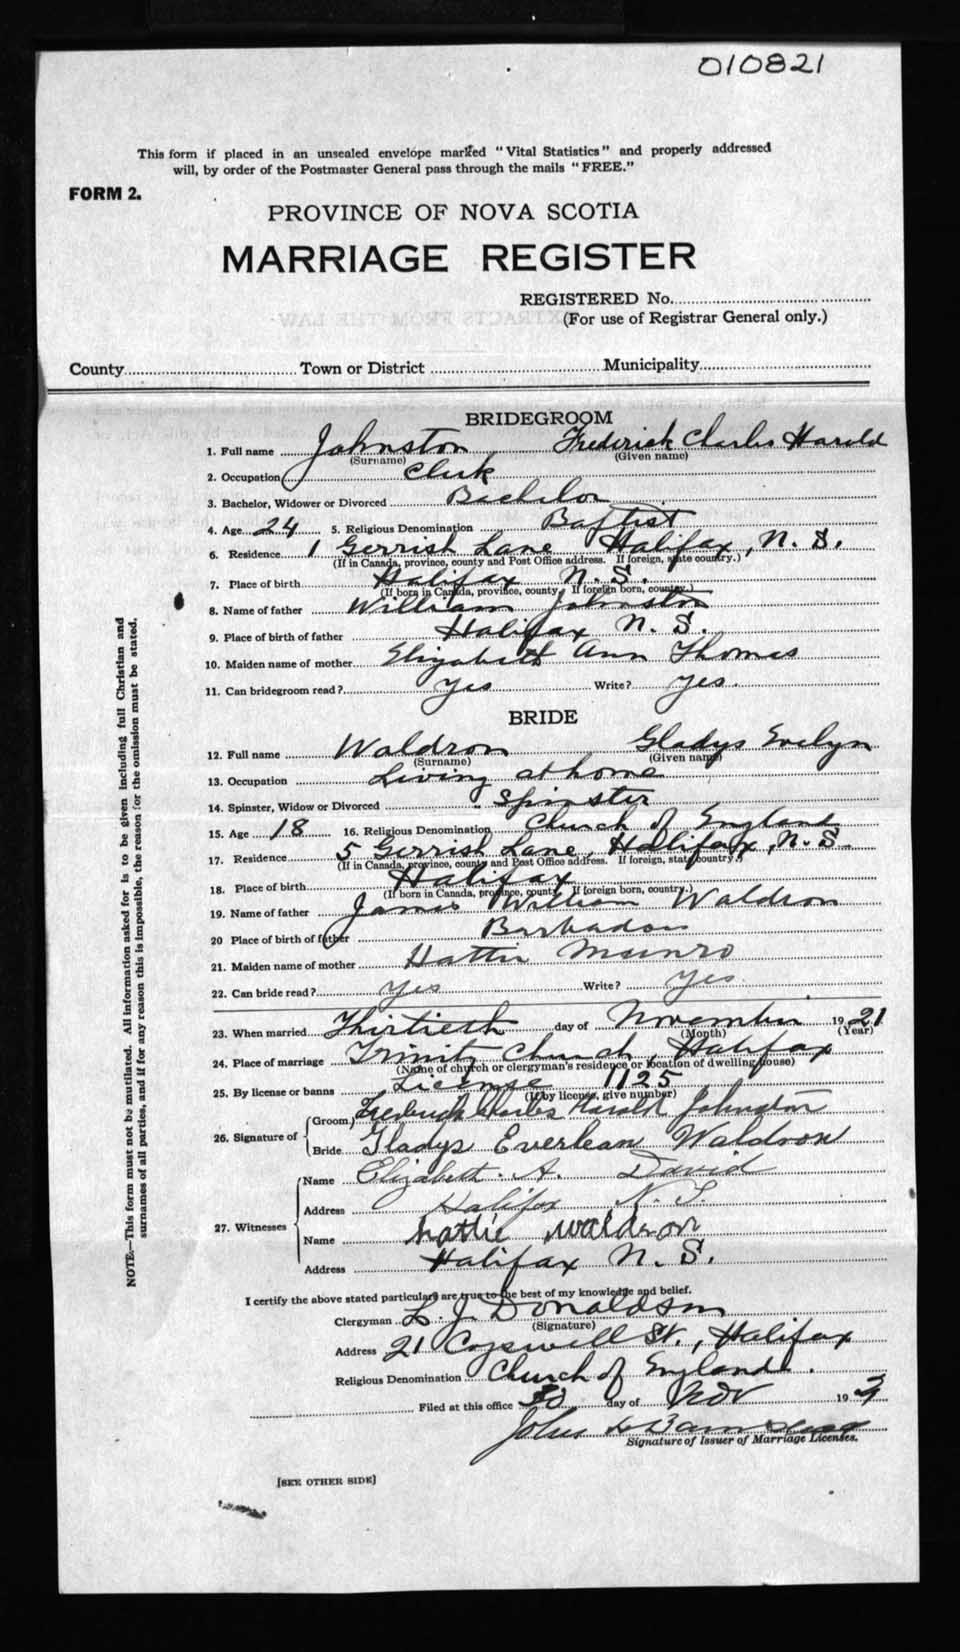 010821
This form if placed in an unsealed envelope marked "Vital Statistics" and properly addressed
will, by order of the Postmaster General pass through the mails "FREE."
FORM 2.
PROVINCE OF NOVA SCOTIA
MARRIAGE REGISTER
REGISTERED No.
(For use of Registrar General only.)
County Town or District Municipality
BRIDEGROOM
1. Full name Johnston Frederick Charles Harold
(Surname) (Given name)
2. Occupation Clerk
3. Bachelor, Widower or Divorced Bachelor
4. Age 24 5. Religious Denomination Baptist
6. Residence 1 Gerrish Lane Halifax, N. S.
(If in Canada, province, county and Post Office address. If foreign, state country.)
7. Place of birth Halifax N. S.
(If born in Canada, province, county. If foreign born, country.)
8. Name of father William Johnston
9. Place of birth of father Halifax N. S.
10. Maiden name of mother Elizabeth Ann Thomas
11. Can bridegroom read? Yes Write? Yes.
BRIDE
12. Full name Waldron Gladys Evelyn
(Surname) (Given name)
13. Occupation Living at home
14. Spinster, Widow or Divorced Spinster
15. Age 18 16. Religious Denomination Church of England
17. Residence 5 Gerrish Lane, Halifax, N. S.
(If in Canada, province, county and Post Office address. If foreign, state country.)
18. Place of birth Halifax
(If born in Canada, province, county. If foreign born, country.)
19. Name of father James William Waldron
20 Place of birth of father Barbados
21. Maiden name of mother Hattie Munro
22. Can bride read? Yes Write? Yes.
23. When married Thirtieth day of November 1921
(Month) (Year)
24. Place of marriage Trinity Church, Halifax
(Name of church or clergyman's residence or location of dwelling house)
25. By license or banns License 1125
(If by license, give number)
26. Signature of Groom Frederick Charles Harold Johnston
Bride Gladys Everlean Waldron
27. Witnesses
Name Elizabeth. A. David
Address Halifax N. S.
Name Hattie Waldron
Address Halifax N. S.
I certify the above stated particulars are true to the best of my knowledge and belief.
Clergyman L. J. Donaldson
(Signature)
Address 21 Cogswell St., Halifax
Religious Denomination Church of England.
Filed at this office 30 day of Nov 192
John
Signature of Issuer of Marriage Licenses.
[SEE OTHER SIDE]
NOTE.—This form must not be mutilated. All information asked for is to be given including full Christian and
surnames of all parties, and if for any reason this is impossible, the reason for the omission must be stated.